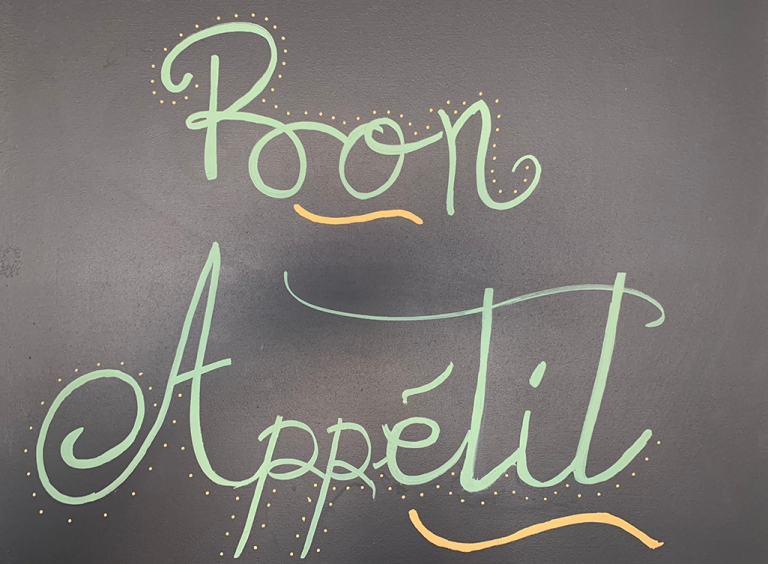 Bon
Appétit